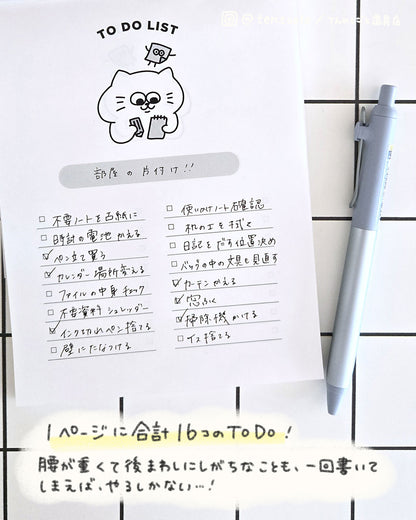 TO DO LIST
部屋の片付け!!
不要ノートを古紙に
時計の電池かえる
ペン立て買う
カレンダー場所変える
ファイルの中身チェック
不要資料シュレッダー
インク切れペン捨てる
壁にたなつける
使いかけノート確認
机の上を拭く
日記をだす位置決め
バッグの中の文具も見直す
カーテンかえる
窓ふく
掃除機かける
イス捨てる
1ページに合計16コのTODO!
腰が重くて後まわしにしがちなことも、一回書いて
しまえば、やるしかない…!